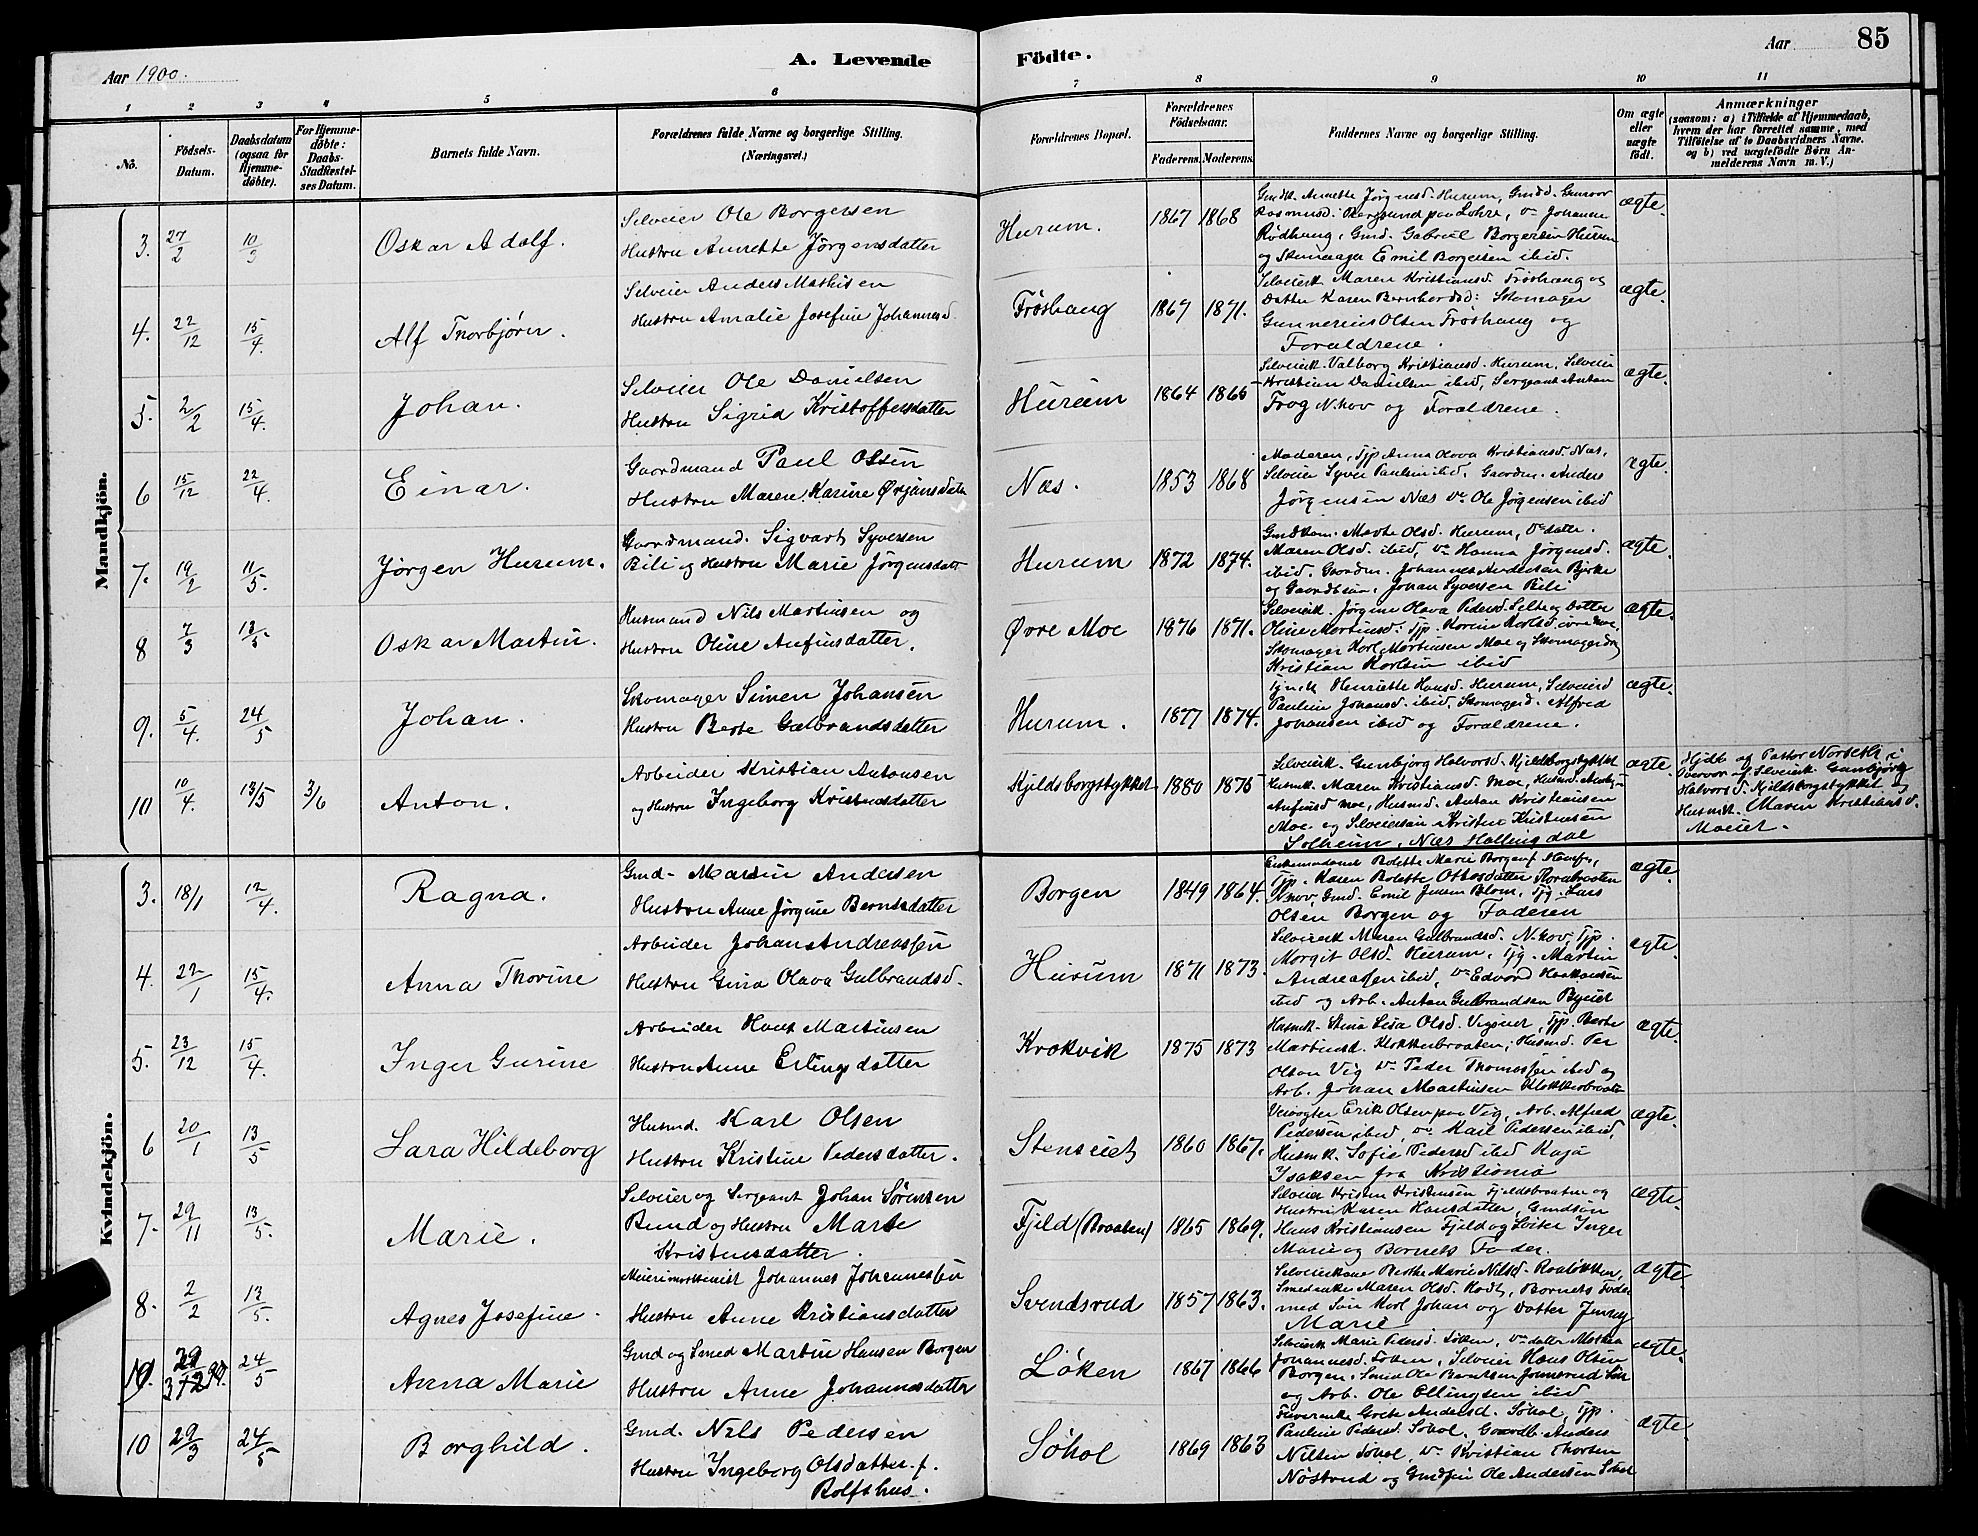 Aar 1900.
A. Levende
Födte.
Aar
85
1 2 3 4 5 6 7 8 9 10 11
No.
Födsels-Datum.
Daabsdatum (ogsaa for Hjemmedöbte).
For Hjemmedöbte: Daabs-Stadfæstelses Datum.
Barnets fulde Navn.
Forældrenes fulde Navne og borgerlige Stilling. (Næringsvei.)
Forældrenes Bopæl.
Forældrenes Födselsaar.
Faderens. Moderens.
Faddernes Navne og borgerlige Stilling.
Om ægte eller uægte födt.
Anmærkninger
(saasom: a) i Tilfælde af Hjemmedaab, hvem der har forrettet samme, med Tilföielse af to Daabsvidners Navne. og b) ved uægtefödte Börn Anmelderens Navn m. V.)
Mandkjön.
3. 27/2 10/3 Oskar Adolf.
Selveier Ole Borgersen
Hustru Annette Jørgensdatter
Hurum. 1867 1868
Gmdk. Annette Jørgensd. Hurum, Gmdd. Gunvor
og Skomager Emil Borgersen ibid.
ægte.
4. 22/12 15/4. Alf Thorbjörn.
Selveier Anders Mathisen
Hustru Amalie Josefine Johannesd.
Fröshaug 1867 1871.
Selveierk. Maren Kristiansd. Fröshaug og
Datter Karen Bernhardsd: Skomager
Gunnerius Olsen Fröshaug og
Forældrene.
ægte.
5. 2/2 15/4. Johan.
Selveier Ole Danielsen
Hustru Sigrid Kristoffersdatter
Hurum 1864 1865
Selveierk. Valborg Kristiansd. Hurum, Selveier
Kristian Danielsen ibid, Sergeant Anton
Frog N.hov og Forældrene.
ægte.
6 15/12 22/4. Einar.
Gaardmand Paul Olsen
Hustru Maren Karine Ørjansdatter
Næs. 1853 1868
Moderen, Tjp Anna Olava Kristiansd. Næs,
Selveier Syver Paulsen ibid. Gaardm. Anders
Jörgensen Næs Ole Jørgensen ibid
ægte.
7. 19/2 11/5. Jørgen Hurum.
Gaardmand. Sigvart Syversen
Bili og Hustru Marie Jörgensdatt
Hurum 1872 1874.
Gmdkone. Marthe Olsd. Hurum,
Maren Olsd. ibid, Hanna Jørgensd.
ibid. Gaardm. Johannes Andersen Bjerke
og Johan Syversen Bili
ægte.
8 7/3 13/5. Oskar Martin.
Husmand Nils Martinsen og
Hustru Oline Anfinsdatter.
Øvre Moe 1876 1871.
Selveierk. Jørgine Olava Pedersd. og Datter
Oline Martinsd. Tjp. Karine Karlsd.
Skomager Karl Martinsen Moe og
Kristian Karlsen ibid
ægte.
9. 5/4. 24/5 Johan.
Skomager Simen Johansen
Hustru Berte Gulbrandsdatter
Hurum. 1877 1874.
Henriette Hansd. Hurum, Selveierd
Pauline Johansd. ibid, Skomagerd. Alfred
Johansen ibid og Forældrene.
ægte.
10 10/4. 13/5 3/6 Anton.
Arbeider Kristian Antonsen
og Hustru Ingeborg Kristensdatter
Kjildsborgstykket 1880 1875
Selveierk. Gunbjørg Halvorsd. Kjildsborgstykket
Husmk. Maren Kristiansd. Moe, Husmd.
Anfinsd Moe, Husmd. Anton Kristiansen
Moe og Selveiersön Kristen Kristensen
Solheim, Næs Hallingdal
ægte
Hjdb af Pastor Norseth i
Overvær af Selveierk. Gunbjørg
Halvorsd. Kjildsborgstykket og
Husmk. Maren Kristiansd.
Moeiet.
Kvindekjön.
3. 18/1 12/4. Ragna.
Gmd. Martin Andersen
Hustru Anne Jørgine Berntsdatter
Borgen 1849 1864.
Tjp. Karen Bolette Ottosdatter
N.hov, Gmd. Emil Blom, Tjg. Lars
Olsen Borgen og Faderen
ægte.
4. 22/1 15/4. Anna Thorine
Arbeider Johan Andreassen
Hustru Gina Olava Gulbrandsd.
Hurum 1871 1873.
Selveierk Maren Gulbrandsd. N.hov, Tjp.
Margit Olsd. Hurum, Tjg. Martin
Andreassen ibid, Edvard Haakonsen
ibid og Arb. Anton Gulbrandsen Byeiet
ægte.
5. 23/12 15/4. Inger Gurine
Arbeider Hans Martinsen
Hustru Anne Erlingsdatter
Krokvik 1875 1873
Husmk. Stina Lisa Olsd. Vigseiet, Tjp. Berte
Martinsd. Klokkerbraaten, Husmd. Per
Olsen Vig Peder Thomassen ibid og
Arb. Johan Martinsen Klokkerbraaten
ægte.
6 20/1 13/5 Sara Hildeborg
Husmd. Karl Olsen
Hustru Kristine Pedersdatter.
Stenseiet 1860 1867.
Erik Olsen paa Vig, Arb. Alfred
Pedersen ibid, Karl Pedersen ibid,
Husmk. Sofie Pedersd ibid Kaja
Isaksen fra Kristiania
ægte.
7. 29/11 13/5. Marie.
Selveier og Sergeant Johan Sørensen
Rund og Hustru Marte
Kristensdatter.
Fjeld (Braaten) 1865 1869.
Selveier Kristen Kristensen Fjeldsbraaten og
Hustru Karen Hansdatter, Gmdsön
Hans Kristiansen Fjeld og Inger
Marie og Barnets Fader.
ægte.
8. 2/2 13/5. Agnes Josefine.
Meierimaskinist Johannes Johannessen
Hustru Anne Kristiansdatter
Svendsrud 1857 1863.
Selveierkone Berthe Marie Nilsd.
Smedenke Maren Olsd. Barnets Fader
med Sön Karl Johan og Datter Jenny
Marie
ægte.
29/12 99. 24/5 Anna Marie
Gmd og Smed Martin Hansen Borgen
Hustru Anne Johannesdatter
Løken 1867 1866
Selveierk Marie Pedersd. Løken, datter Mathea
Johannesd. Løken, Selveier Hans Olsen
Borgen, Ole Berntsen
og Arb. Ole Ellingsen ibid
ægte.
10 29/3 24/5 Borghild.
Gmd. Nils Pedersen
Hustru Ingeborg Olsdatter f.
Rolfshus.
Søhol 1869 1863
Grete Andersd. Søhol, Tjp.
Pauline Pedersd. Søhol, Anders
Nilsen Søhol, Kristian Thorsen
Nøstrud og Ole Andersen Søhol
ægte.